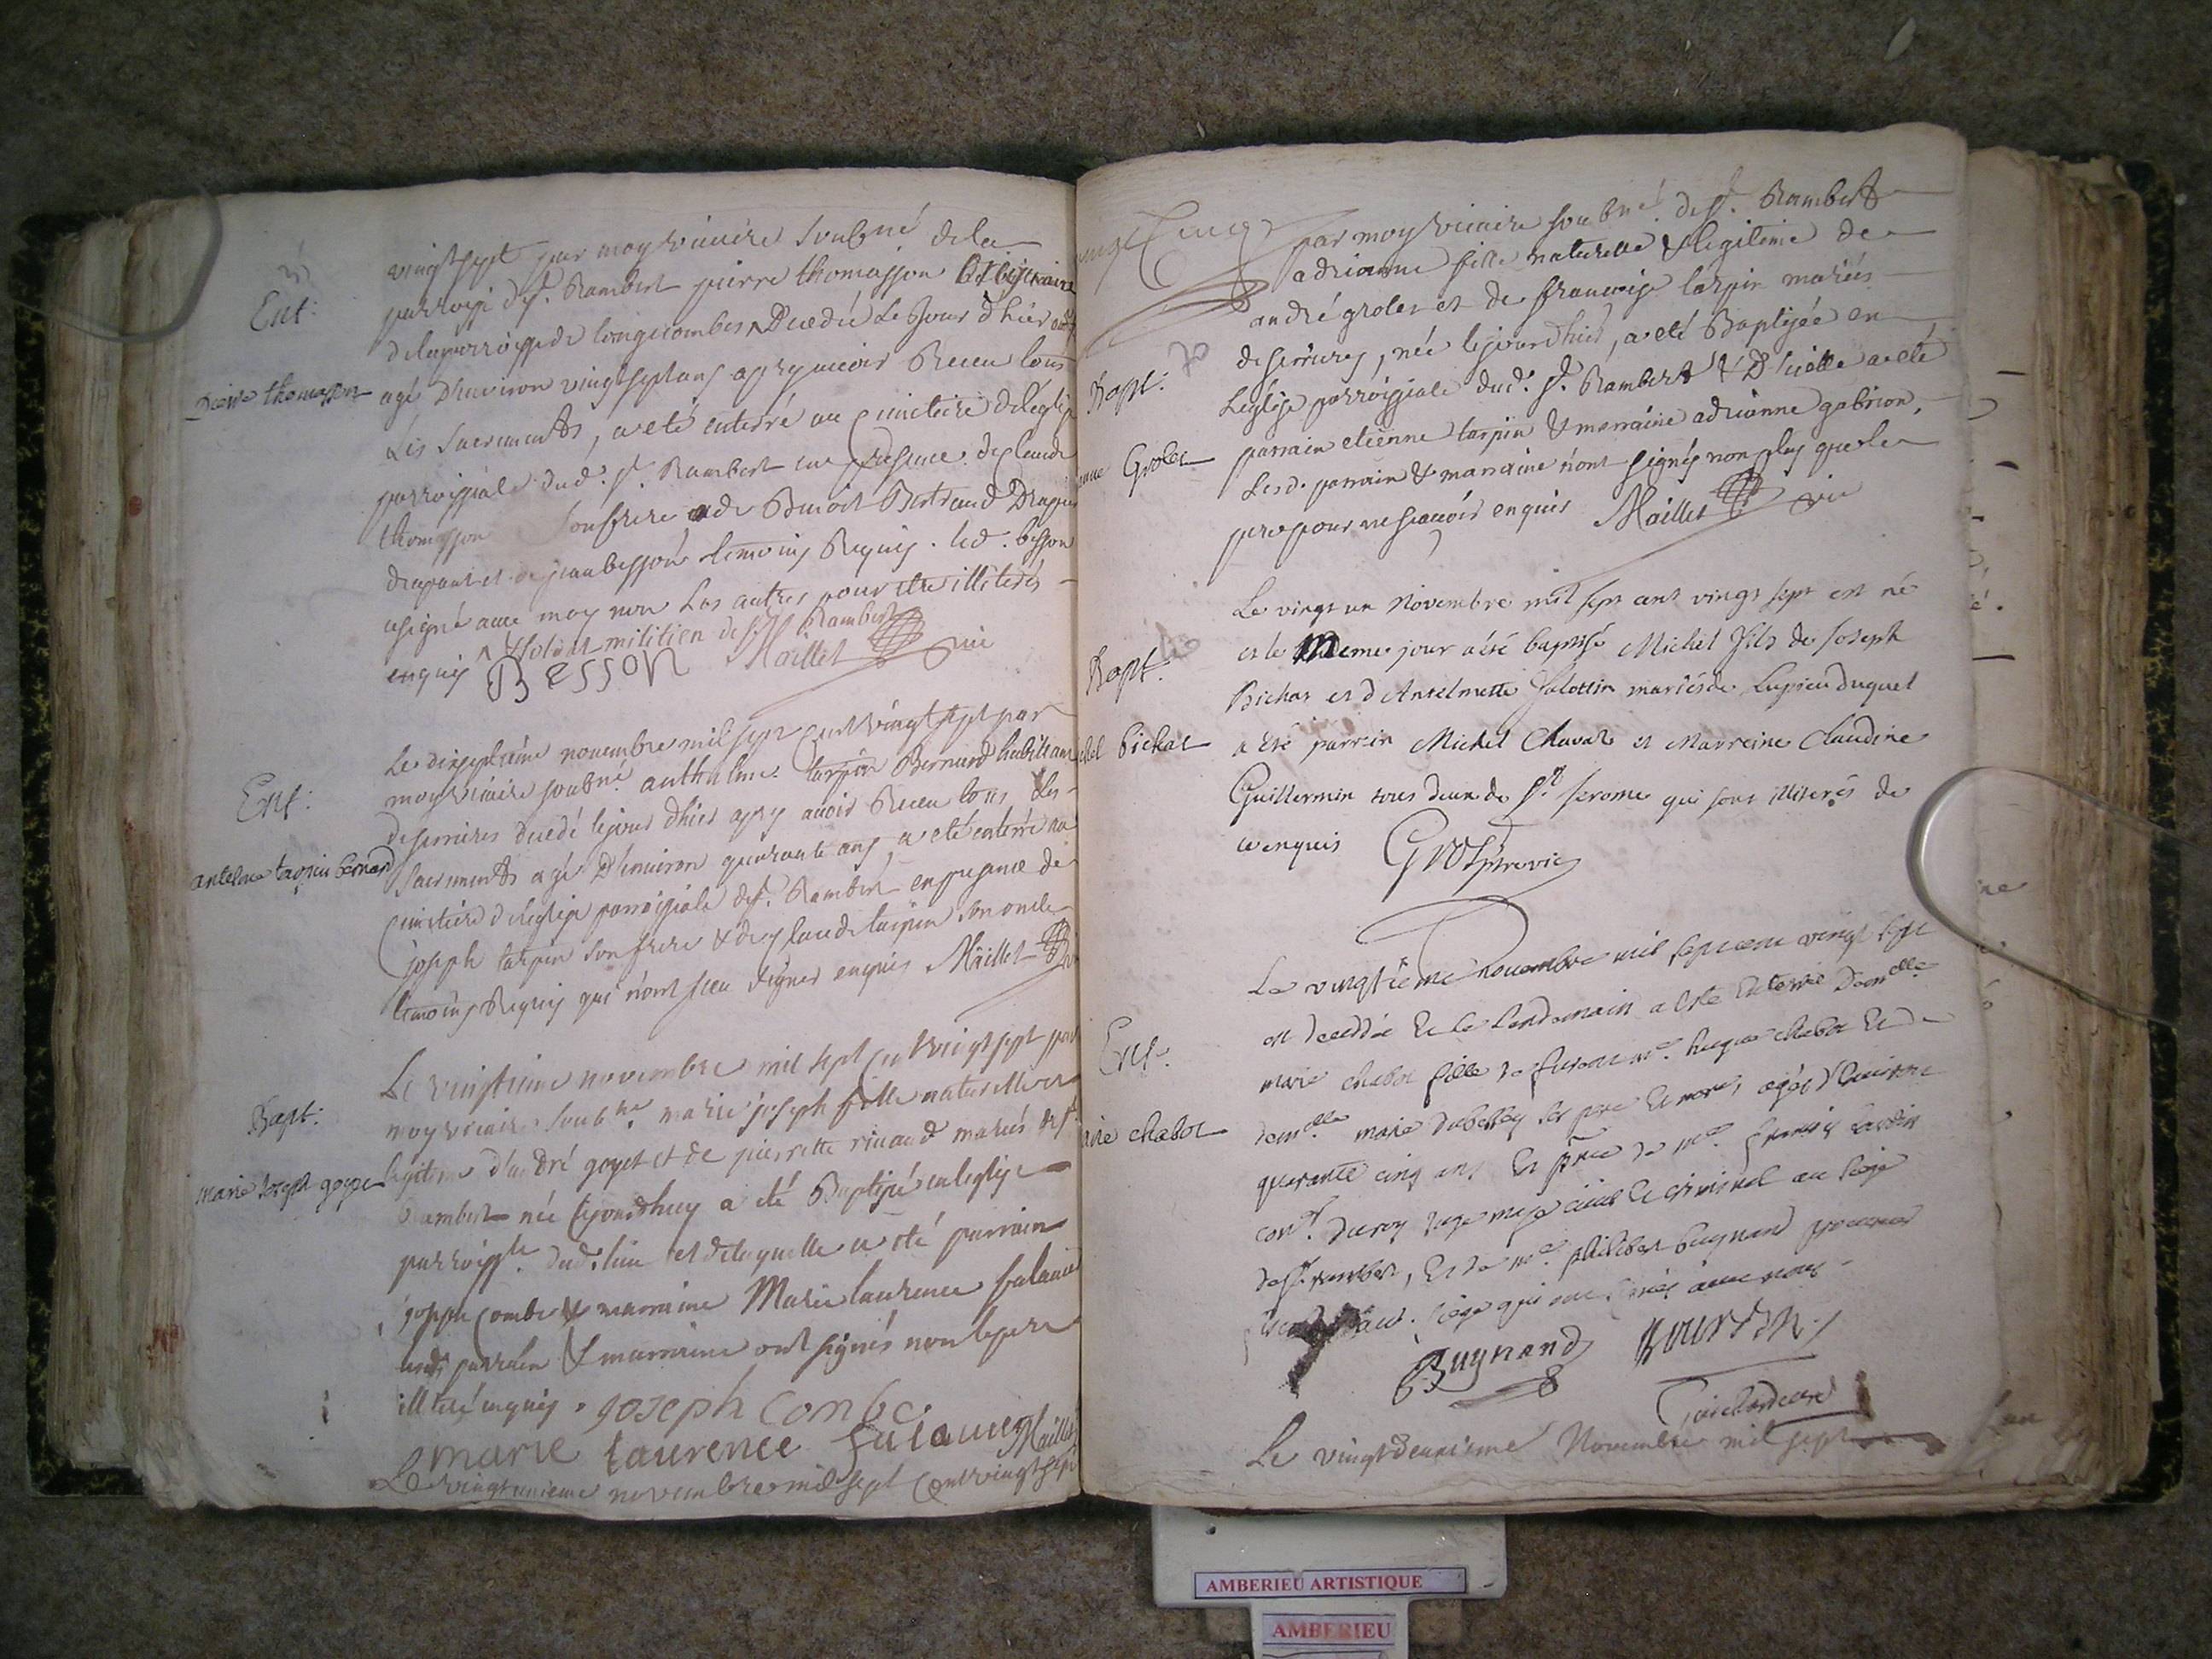 Ent:
pierre thomasson
vingt sept par moy vicaire soubné de la
parroisse de st. Rambert pierre thomasson
de la parroisse de longecombes decedé le Jour d'hier
agé d'environ vingt sept ans apres avoir Receu tous
les sacrements, a eté enterré au Cimetiere de l'eglise
parroissiale dud. st. Rambert en presence de Claude
thomasson son frere de Benoit Bertrand Drapier
et de jean besson temoins Requis. led. besson
a signé avec moy non les autres pour etre illiterés
enquis ^ soldat militien de st. Rambert
Besson Maillet vic
Ent:
antelme tarpin bernard
Le dixseptiéme novembre mil sept Cent vingt sept par
moy vicaire soubné. anthelme tarpin Bernard habitant
de serrieres decedé le jour d'hier apres avoir Receu tous les
sacrements agé D'environ quarante ans, a eté enterré au
Cimetiere de l'eglise parroissiale de st. Rambert en presance de
joseph tarpin son frere & de Claude tarpin son oncle
temoins Requis qui n'ont sceu signer enquis Maillet vic
Bapt:
marie Joseph goyet
Le vingtieme novembre mil sept Cent vingt sept par
moy vicaire soubné. marie joseph fille naturelle et
legitime d'andré goyet et de pierrette rinaud mariés de st.
Rambert née ce jourdhuy a eté Baptisée en l'eglise
parroissle. dud. lieu et de laquelle a eté parrain
joseph Combe & marraine Marie laurence
lesd. parrain & marraine ont signés non le pere
illiteré enquis. joseph combe
marie laurence Maillet
Le vingtunieme novembre mil sept Cent vingt sept
par moy vicaire soubné. de st. Rambert
adrianne fille naturelle & legitime de
andré groler et de francoise tarpin mariés
de serrieres, née le jour d'hier, a eté Baptisée en
Bapt:
Groler
L'eglise parroissiale dud. st. Rambert & D'icelle a eté
parrain etienne tarpin & marraine adrianne gabrion,
Lesd. parrain & marraine n'ont signés non plus que le
pere pour ne scavoir enquis Maillet vic
Bapt.
bichat
Le vingt un Novembre mil sept cent vingt sept est né
et le meme jour a été baptisé Michel fils de Joseph
Bichat et d'Antelmette mariés de Lupieu duquel
a été parrein Michel Chavat et Marreine Claudine
Guillermin tous deux de St. Jerome qui sont illiterés de
ce enquis
Ent.
chabot
Le vingtiéme novembre mil sept cent vingt sept
est decedée Et le Lendemain a esté Enterrée demlle.
marie chabot fille de Me. hugue chabot Et de
demlle marie Dubessey ses pere Et mere, agée d'Environ
quarante cinq ans En pnce de Me. françois
conr. du roy Juge maje civil Et criminel au siege
de st. rambert, Et de Me. philibert buynand procureur
aud. siege qui ont signés avec nous
Buynand
Le vingtdeuxieme Novembre mil sept
AMBERIEU ARTISTIQUE
AMBERIEU